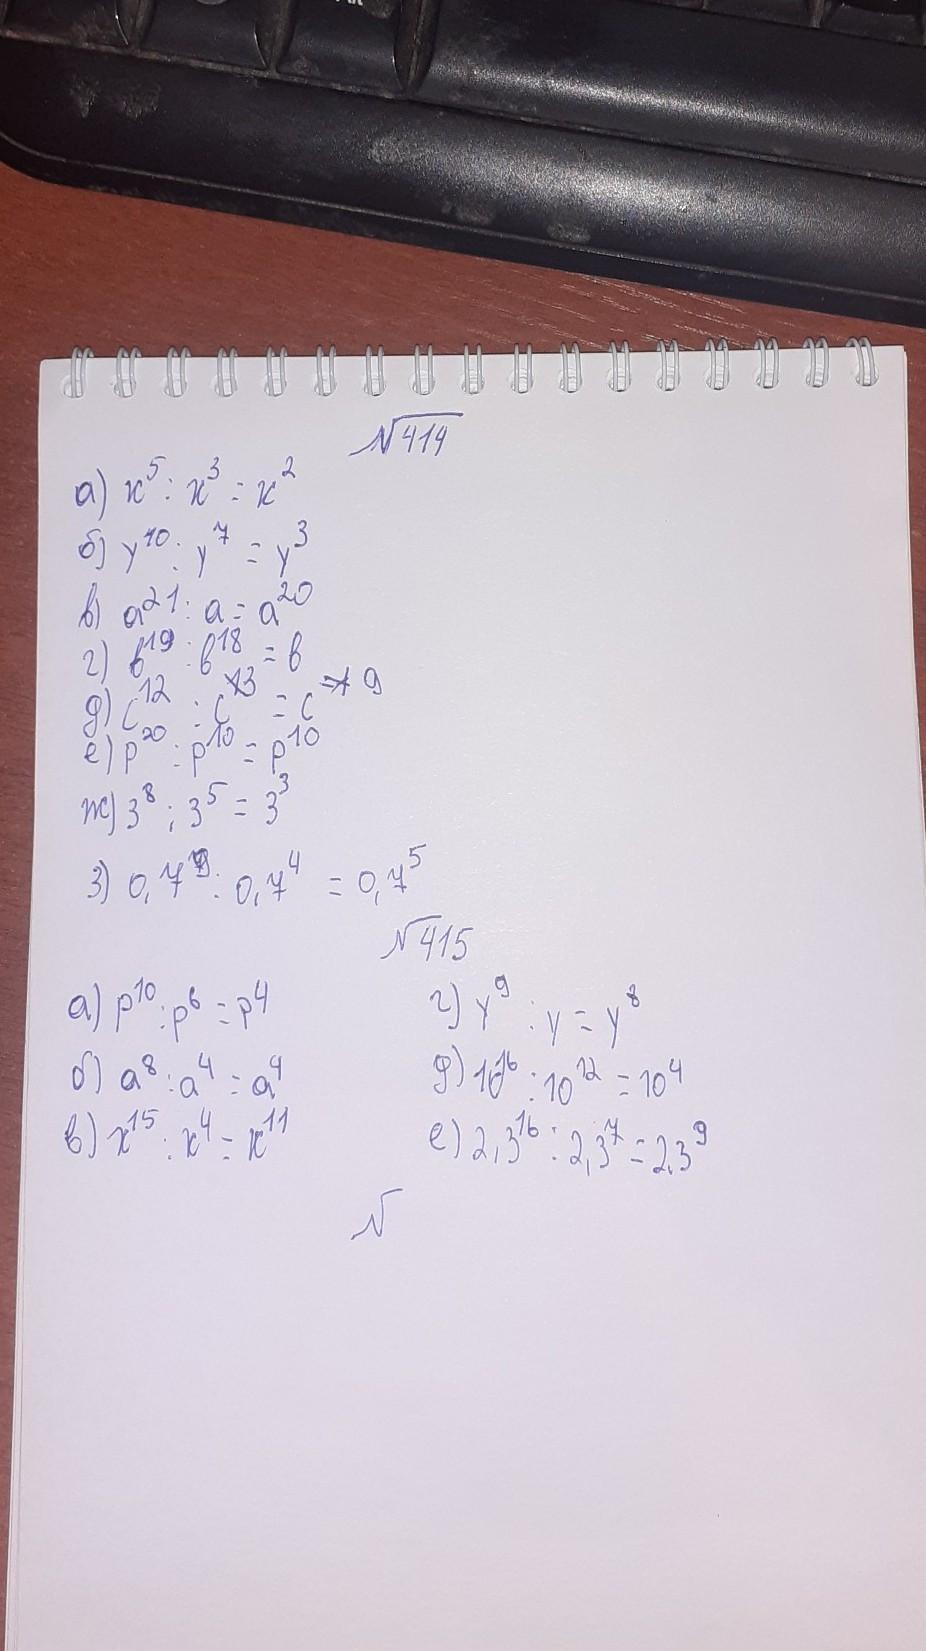 №414
а) x⁵ : x³ = x²
б) y¹⁰ : y⁷ = y³
в) a²¹ : a = a²⁰
г) b¹⁹ : b¹⁸ = b
д) c¹² : c³ = c⁹
е) p²⁰ : p¹⁰ = p¹⁰
ж) 3⁸ : 3⁵ = 3³
з) 0,7⁹ : 0,7⁴ = 0,7⁵
№415
а) p¹⁰ : p⁶ = p⁴
б) a⁸ : a⁴ = a⁴
в) x¹⁵ : x⁴ = x¹¹
г) y⁹ : y = y⁸
д) 10¹⁶ : 10¹² = 10⁴
е) 2,3¹⁶ : 2,3⁷ = 2,3⁹
№